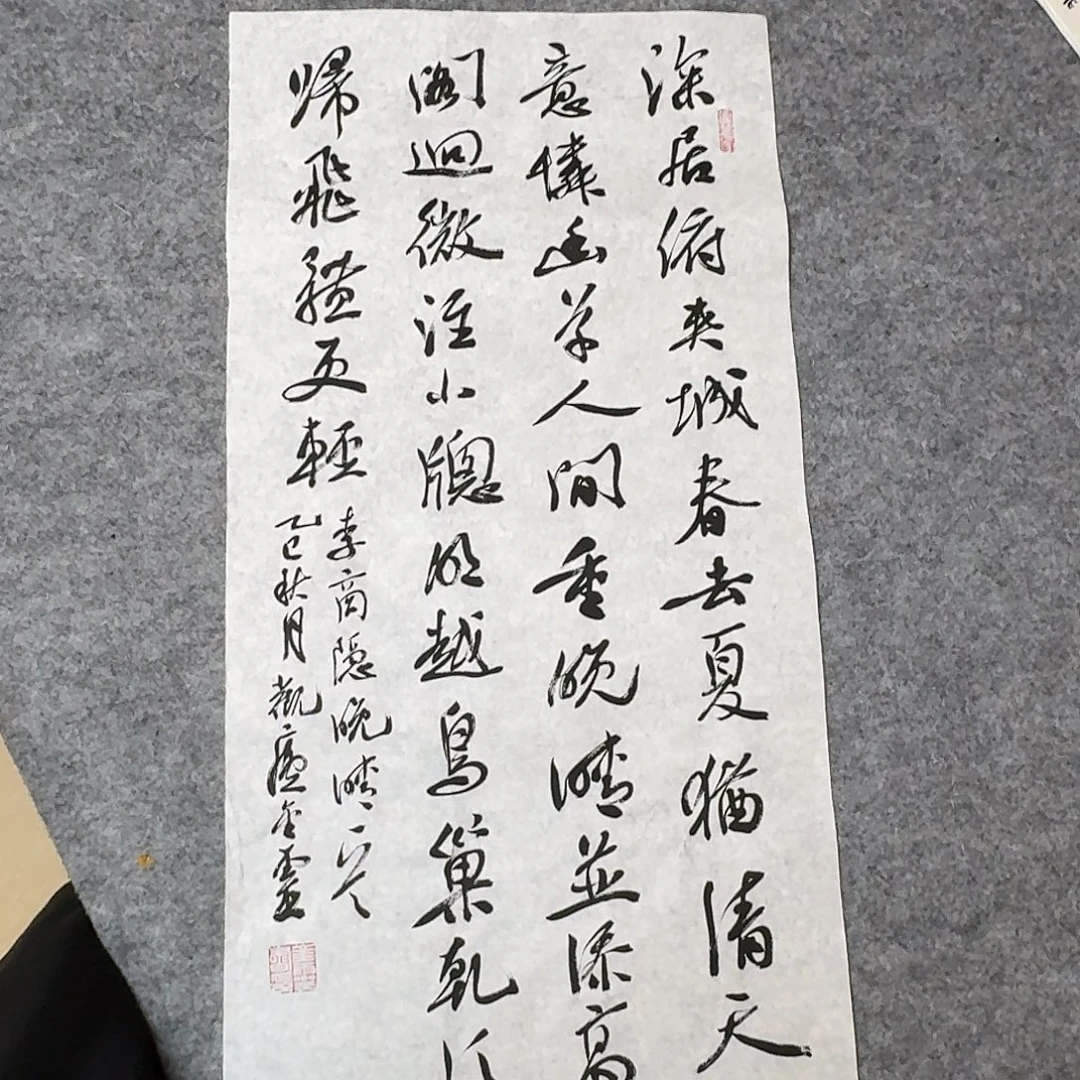 深居俯夹城春去夏猶清天
意憐幽草人間重晚晴並添高
閣迥微注小牕明越鳥巢乾後
歸飛體更輕
李商隱晚晴一首
乙巳秋月觀廬金靈